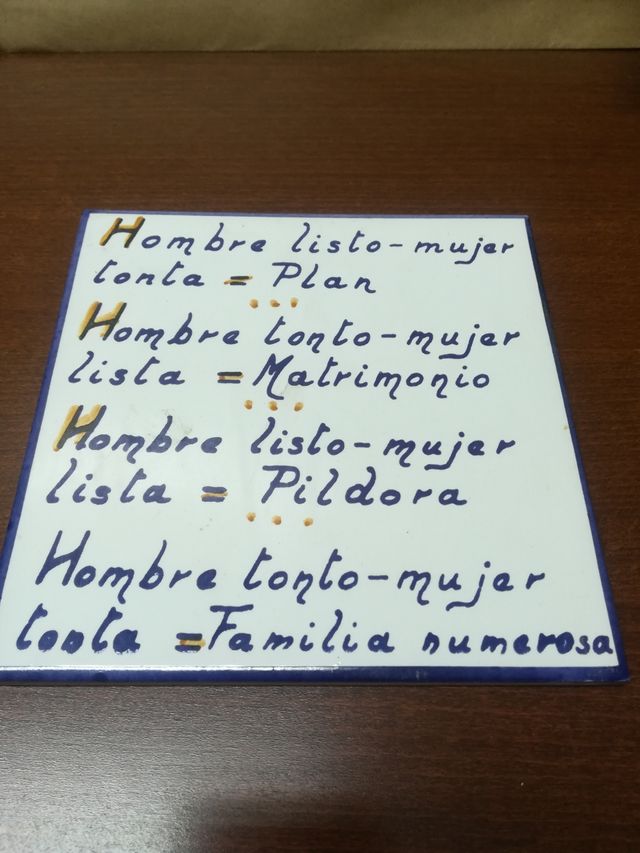 Hombre listo-mujer
tonta = Plan
...
Hombre tonto-mujer
lista = Matrimonio
...
Hombre listo-mujer
lista = Pildora
...
Hombre tonto-mujer
tonta = Familia numerosa